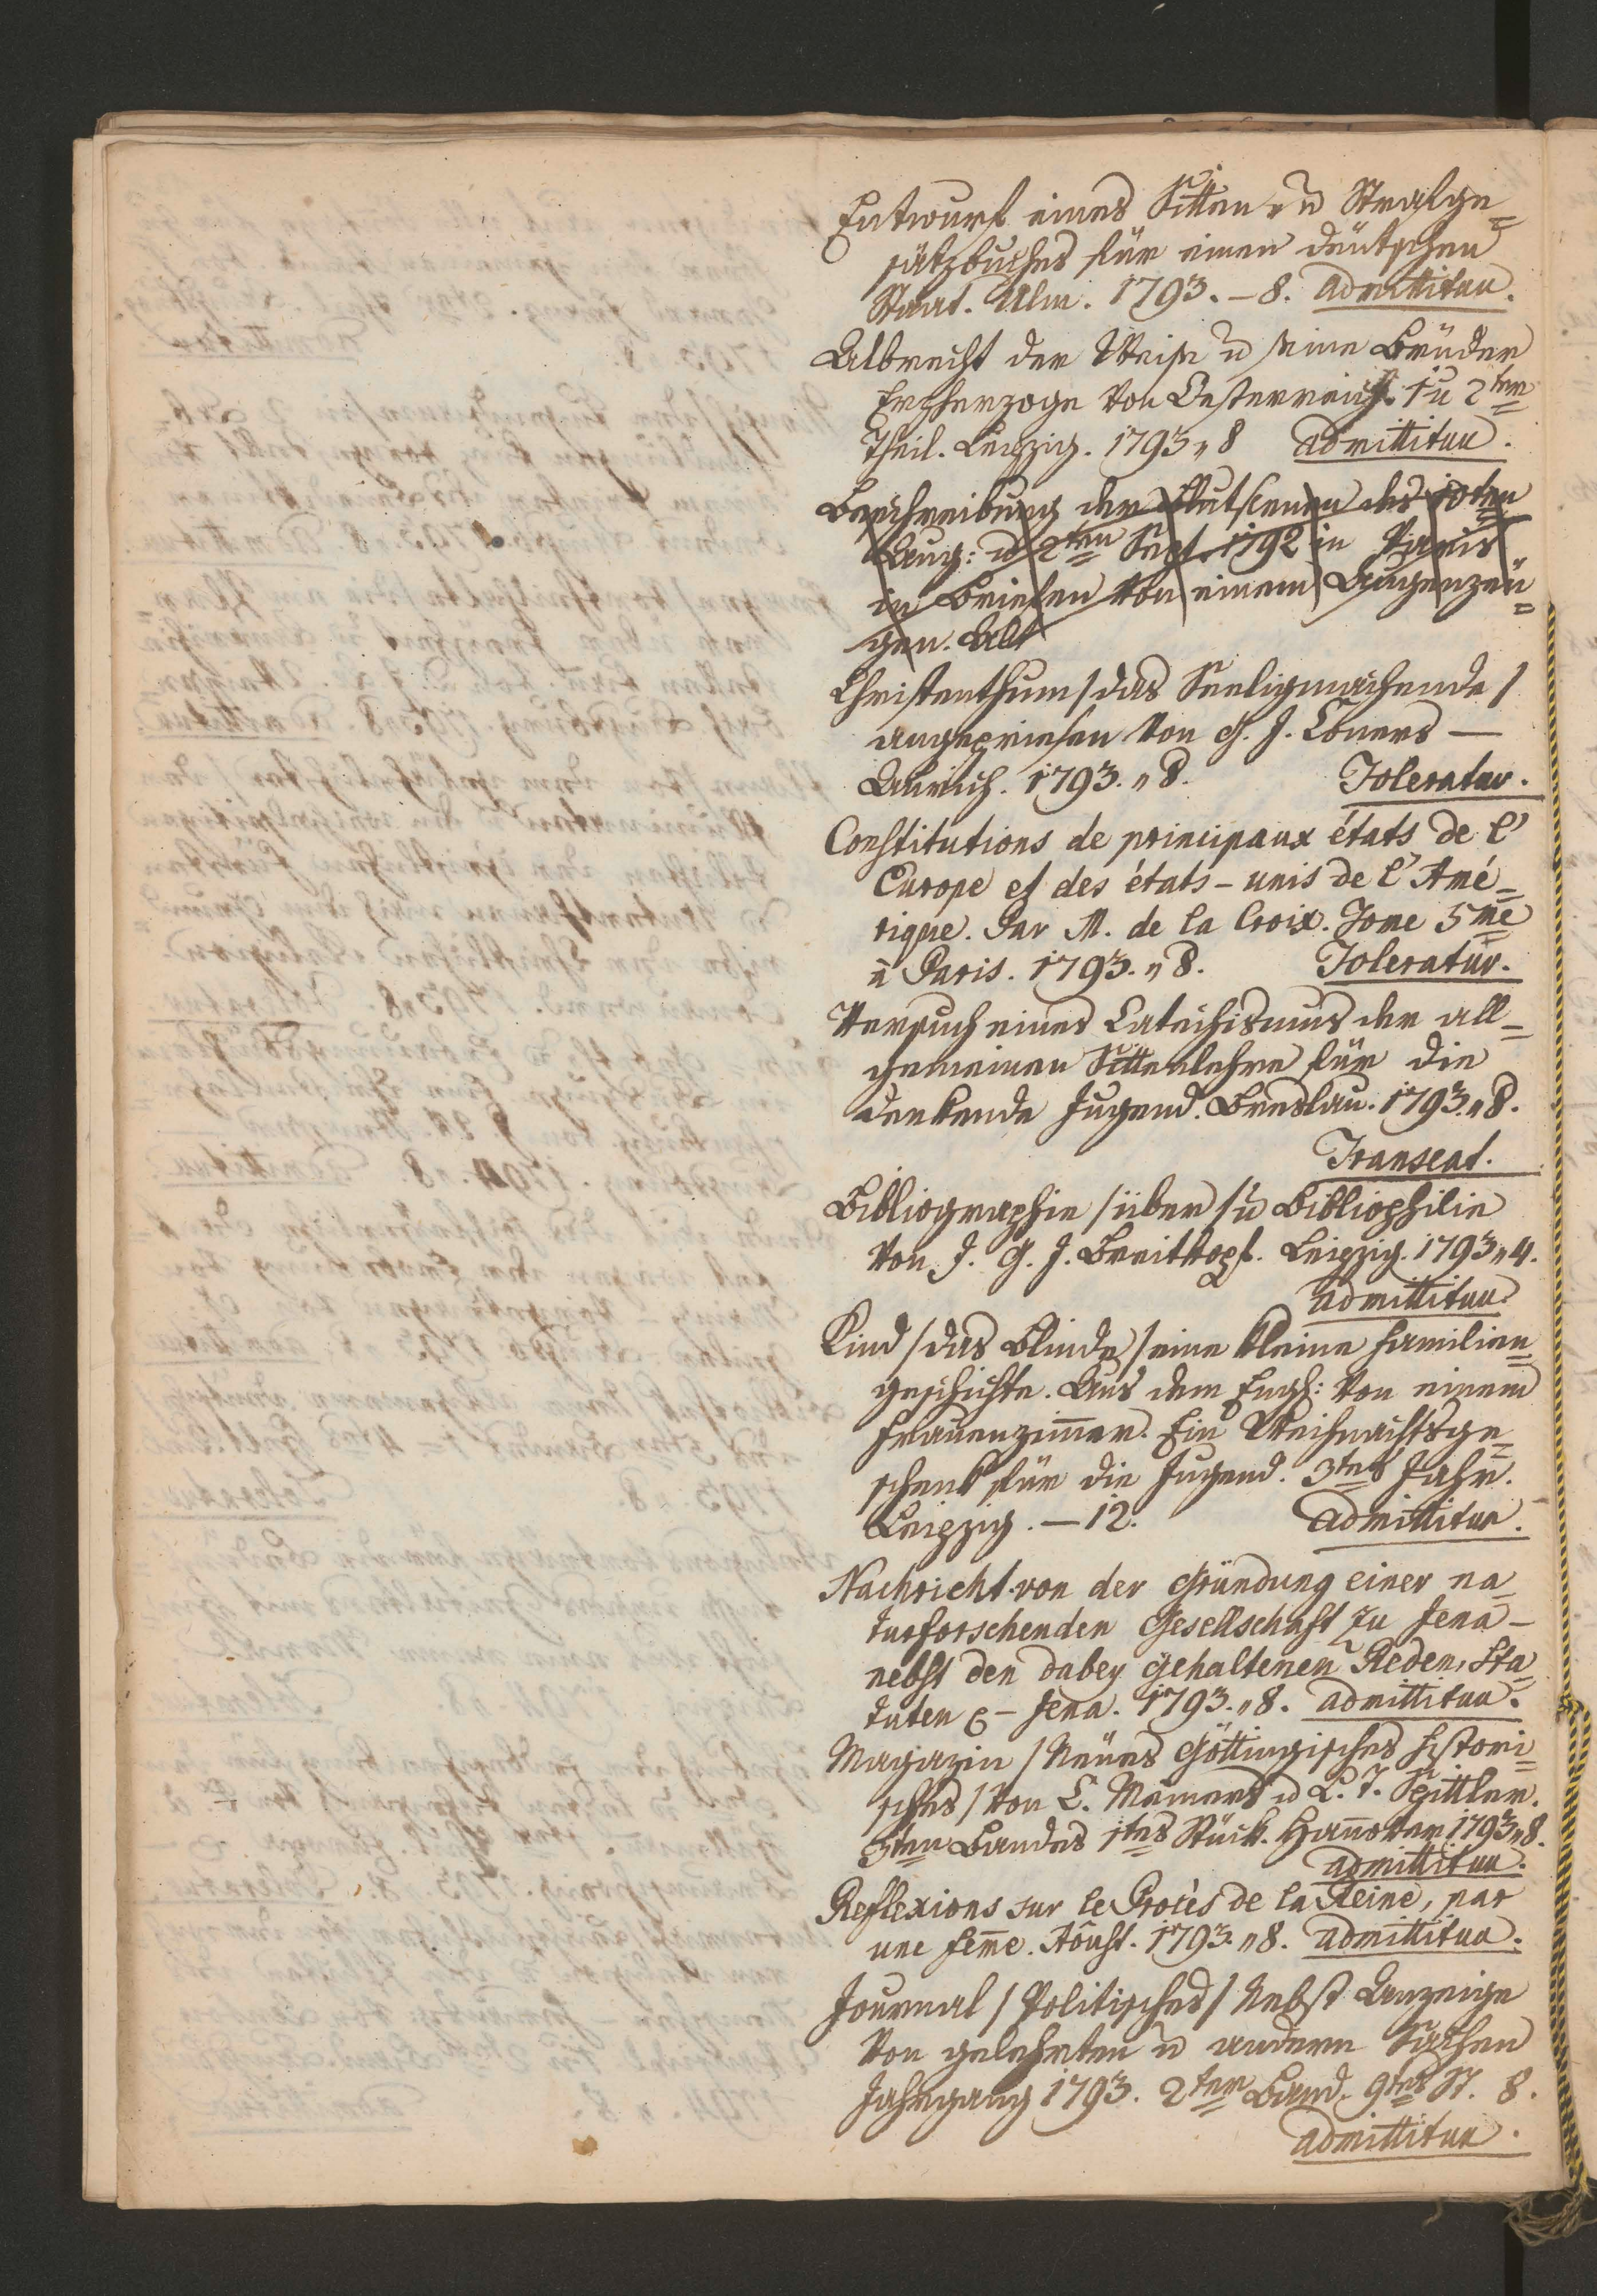 Entwurf eines Sitten- u Strafge=
sätzbuches für einen deütschen
Staat. Ulm. 1793. – 8. admittitur.
Albrecht der Weise u seine Brüder
Erzherzoge von Oesterreich. 1 u 2ter
Theil. Leipzig. 1793 „ 8 admittitur.
Beschreibung der Blutscenen des 10ten
Aug: u 2ten Sept. 1792 in Paris
in Briefen von einem Augenzeü=
gen. Alt
Christenthum / das Seeligmachende /
angepriesen von G. J. Coners –
Aurich. 1793. „ 8. Toleratur.
Constitutions de principaux états de l'
Europe et des états-unis de l'Amé=
rique. Par M. de la Croix. Tome 5me
à Paris. 1793. „ 8. Toleratur.
Versuch eines Catechismus der all=
gemeinen Sittenlehre für die
denkende Jugend. Breslau. 1793. „ 8.
Transeat.
Bibliographie / über / u Bibliophilie
von J. G. J. Breitkopf. Leipzig. 1793 „ 4.
admittitur
Kind / das Blinde / eine kleine Familien=
geschichte. Aus dem Engl: von einem
Frauenzim̅er. Ein Weihnachtsge=
schenk für die Jugend. 3tes Jahr.
Leipzig. – 12. admittitur.
Nachricht von der Gründung einer na=
turforschenden Gesellschaft zu Jena –
nebst den dabey gehaltenen Reden, Sta=
tuten – Jena. 1793. „ 8. admittitur.
Magazin / Neües Göttingisches histori=
sches / von C. Meiners u L. T. Spittler.
3ten Bandes 1tes Stück. Han̅over 1793 „ 8.
admittitur.
Reflexions sur le Procès de la Reine, par
une fem̅e. Aôust. 1793. „ 8. admittitur.
Journal / Politisches / Nebst Anzeige
von gelehrten u andern Sachen
Jahrgang 1793. 2ter Band. 9tes St. 8.
admittitur.